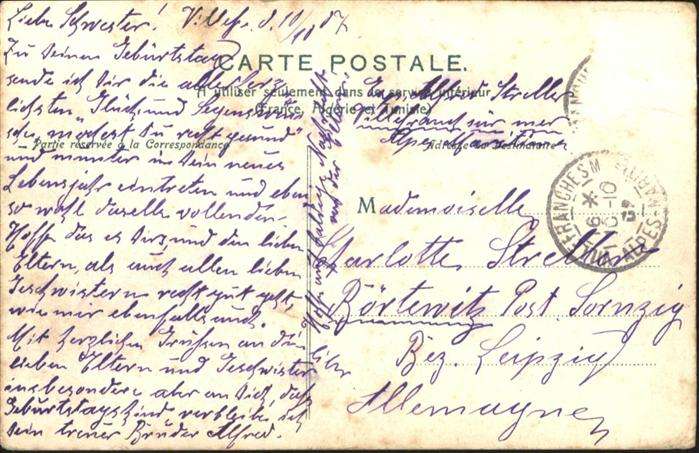 Liebe Schwester! Villefr. d. 10/10 07
Zu deinem Geburtstag
sende ich dir die allerherz
lichsten "Glück und Segenswün
sche, mögest du recht gesund
und munter in dein neues
Lebensjahr eintreten und eben
so wohl dasselbe vollenden.
Hoffe, das es dir, und den lieben
Eltern, als auch allen lieben
Geschwistern recht gut geht
wie mir ebenfalls auch.
Mit herzlichen Grüssen an die
lieben Eltern und Geschwister
insbesondere aber an dich, das
Geburtstagskind verbleibe ich
dein treuer Bruder Alfred.
Hoffe auf baldige
CARTE POSTALE.
A utiliser seulement dans le service intérieur
(France, Algérie et Tunisie)
Partie réservée à la Correspondance
Adresse du Destinataire
Alfred Streller
Villefranche sur mer
Alpes Maritimes
Mademoiselle
Charlotte Streller
Börtewitz Post Sornzig
Bez. Leipzig
Allemagne